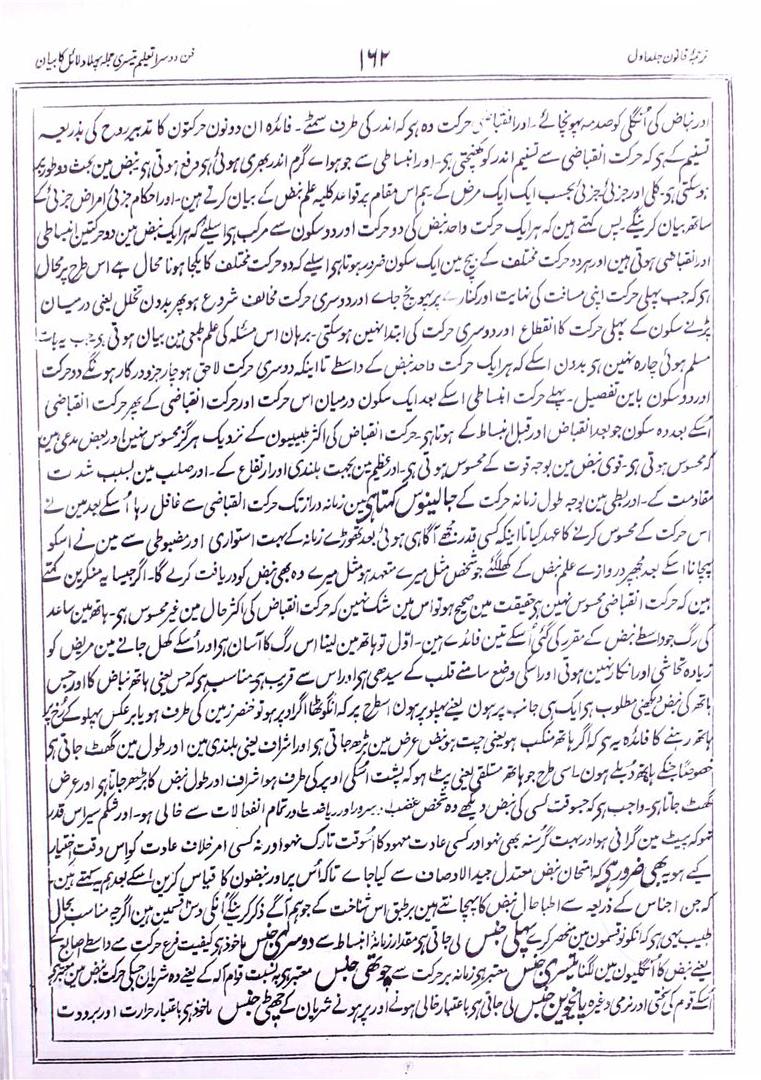 ترجمۂ قانون جلد اول
۱۶۲
فن دوسرا تعلیم تیسری جملہ پہلا دلائل کا بیان
اور نباض کی اُنگلی کو صدمہ پہونچائے ۔ اور انقباضی حرکت وہ ہی کہ اندر کی طرف سمٹے ۔ فائدہ ان دونون حرکتون کا تدبیر روح کی بذریعہ
نسیم کے ہی کہ حرکت انقباضی سے نسیم اندر کو کھینچتی ہی ۔ اور انبساطی سے جو ہواے گرم اندر بھری ہوئی ہی دفع ہوتی ہی نبض مین بحث دو طور پر
ہوسکتی ہی ۔ کلی اور جزئی جزئی بحسب ایک ایک مرض کے ہم اس مقام پر قواعد کلیہ علم نبض کے بیان کرتے ہین ۔ اور احکام جزئی امراض جزئی کے
ساتھ بیان کرینگے پس کہتے ہین کہ ہر ایک حرکت واحد نبض کی دو حرکت اور دو سکون سے مرکب ہی اسلیے کہ ہر ایک نبض مین دو حرکتین انبساطی
اور انقباضی ہوتی ہین اور ہر دو حرکت مختلف کے بیچ مین ایک سکون ضرور ہوتا ہی اسلیے کہ دو حرکت مختلف کا یکجا ہونا محال ہے اس طرح پر محال
ہی کہ جب پہلی حرکت اپنی مسافت کی نہایت اور کنارے پر پہونچ جاے اور دوسری حرکت مخالف شروع ہو پھر بدون تخلل یعنی درمیان
پڑنے سکون کے پہلی حرکت کا انقطاع اور دوسری حرکت کی ابتدا نہین ہوسکتی ۔ برہان اس مسئلہ کی علم طبعی مین بیان ہوتی ہی جب یہ بات
مسلم ہوئی چارہ نہین ہی بدون اسکے کہ ہر ایک حرکت واحد نبض کے واسطے تا اینکہ دوسری حرکت لاحق ہو چار جزو درکار ہونگے دو حرکت
اور دو سکون باین تفصیل ۔ پہلے حرکت انبساطی اسکے بعد ایک سکون درمیان اس حرکت اور حرکت انقباضی کے پھر حرکت انقباضی
اُسکے بعد وہ سکون جو بعد انقباض اور قبل انبساط کے ہوتا ہی ۔ حرکت انقباض کی اکثر طبیبون کے نزدیک ہرگز محسوس نہین اور بعض مدعی ہین
کہ محسوس ہوتی ہی ۔ قوی نبض مین بوجہ قوت کے محسوس ہوتی ہی ۔ اور عظیم مین بجہت بلندی اور ارتفاع کے ۔ اور صلب مین بسبب شدت
مقاومت کے ۔ اور بطی مین بوجہ طول زمانہ حرکت کے جالینوس کہتا ہی مین زمانہ دراز تک حرکت انقباضی سے غافل رہا اُسکے بعد مین نے
اس حرکت کے محسوس کرنے کا عہد کیا تا اینکہ کسی قدر مجھے آگاہی ہوئی بعد تھوڑے زمانہ کے بہت استواری اور مضبوطی سے مین نے اسکو
پہچانا اسکے بعد مجھپر دروازے علم نبض کے کھلگئے جو شخص مثل میرے متعہد ہو مثل میرے وہ بھی نبض کو دریافت کرے گا ۔ اگر جیسا یہ منکرین کہتے
ہین کہ حرکت انقباضی محسوس نہین ہی حقیقت مین صحیح ہو تو اس مین شک نہین کہ حرکت انقباض کی اکثر حال مین غیر محسوس ہی ۔ ہاتھ مین ساعد
کی رگ جو واسطے نبض کے مقرر کی گئی اُسکے تین فائدے ہین ۔ اوّل تو ہاتھ مین لینا اس رگ کا آسان ہی اور اُسکے کھل جانے مین مریض کو
زیادہ تحاشی اور انکار نہین ہوتی اور اسکی وضع سامنے قلب کے سیدھی ہی اور اس سے قریب ہی مناسب ہی کہ جس یعنی ہاتھ نباض کا اور جس
ہاتھ کی نبض دیکھنی مطلوب ہی ایک ہی جانب پر ہون یعنے پہلو پر ہون اسطرح پر کہ انگوٹھا اگر اوپر ہو تو خنصر زمین کی طرف ہو یا برعکس پہلو کے رُخ پر
ہاتھ رہنے کا فائدہ یہ ہی کہ اگر ہاتھ منکب ہو یعنی چت ہو نبض عرض مین بڑھ جاتی ہی اور اشراف یعنی بلندی مین اور طول مین گھٹ جاتی ہی
خصوصًا جنکے ہاتھ دُبلے ہون ۔ اسی طرح جو ہاتھ مستلقی یعنی پٹ ہو کہ پشت اُسکی اوپر کی طرف ہو اشراف اور طول نبض کا بڑھ جاتا ہی اور عرض
گھٹ جاتا ہی ۔ واجب ہی کہ جسوقت کسی کی نبض دیکھے وہ شخص غضب سرور اور ریاضت اور تمام انفعالات سے خالی ہو ۔ اور شکم سیر اس قدر
نہو کہ پیٹ مین گرانی ہو اور بہت گرسنہ بھی نہو اور کسی عادت معہود کا اُسوقت تارک نہو اور نہ کسی امر خلاف عادت کو اُس وقت اختیار
کیے ہو یہ بھی ضرور ہی کہ امتحان نبض معتدل جید الاوصاف سے کیا جاے تاکہ اُس پر اور نبضون کا قیاس کرین اسکے بعد ہم یہ کہتے ہین
کہ جن اجناس کے ذریعہ سے اطبا حال نبض کا پہچانتے ہین بر طبق اس شناخت کے جو ہم آگے ذکر کرینگے اُنکی دس قسمین ہین اگرچہ مناسب بحال
طبیب یہی ہی کہ انکو نو قسمون مین منحصر کرے پہلی جنس لی جاتی ہی مقدار زمانۂ انبساط سے دوسری جنس ماخوذ ہی کیفیت قرع حرکت سے واسطے اصابع کے
یعنے نبض کا اُنگلیون مین لگنا تیسری جنس معتبر ہی زمانہ ہر حرکت سے چوتھی جنس معتبر ہی پشت قوام آلہ کے یعنے وہ شریان جسکی حرکت نبض مین
اُسکے قوام کی سختی اور نرمی وغیرہ پانچوین جنس لی جاتی ہی باعتبار خالی ہونے اور پر ہونے شریان کے چھٹی جنس ماخوذ ہی باعتبار حرارت اور برودت